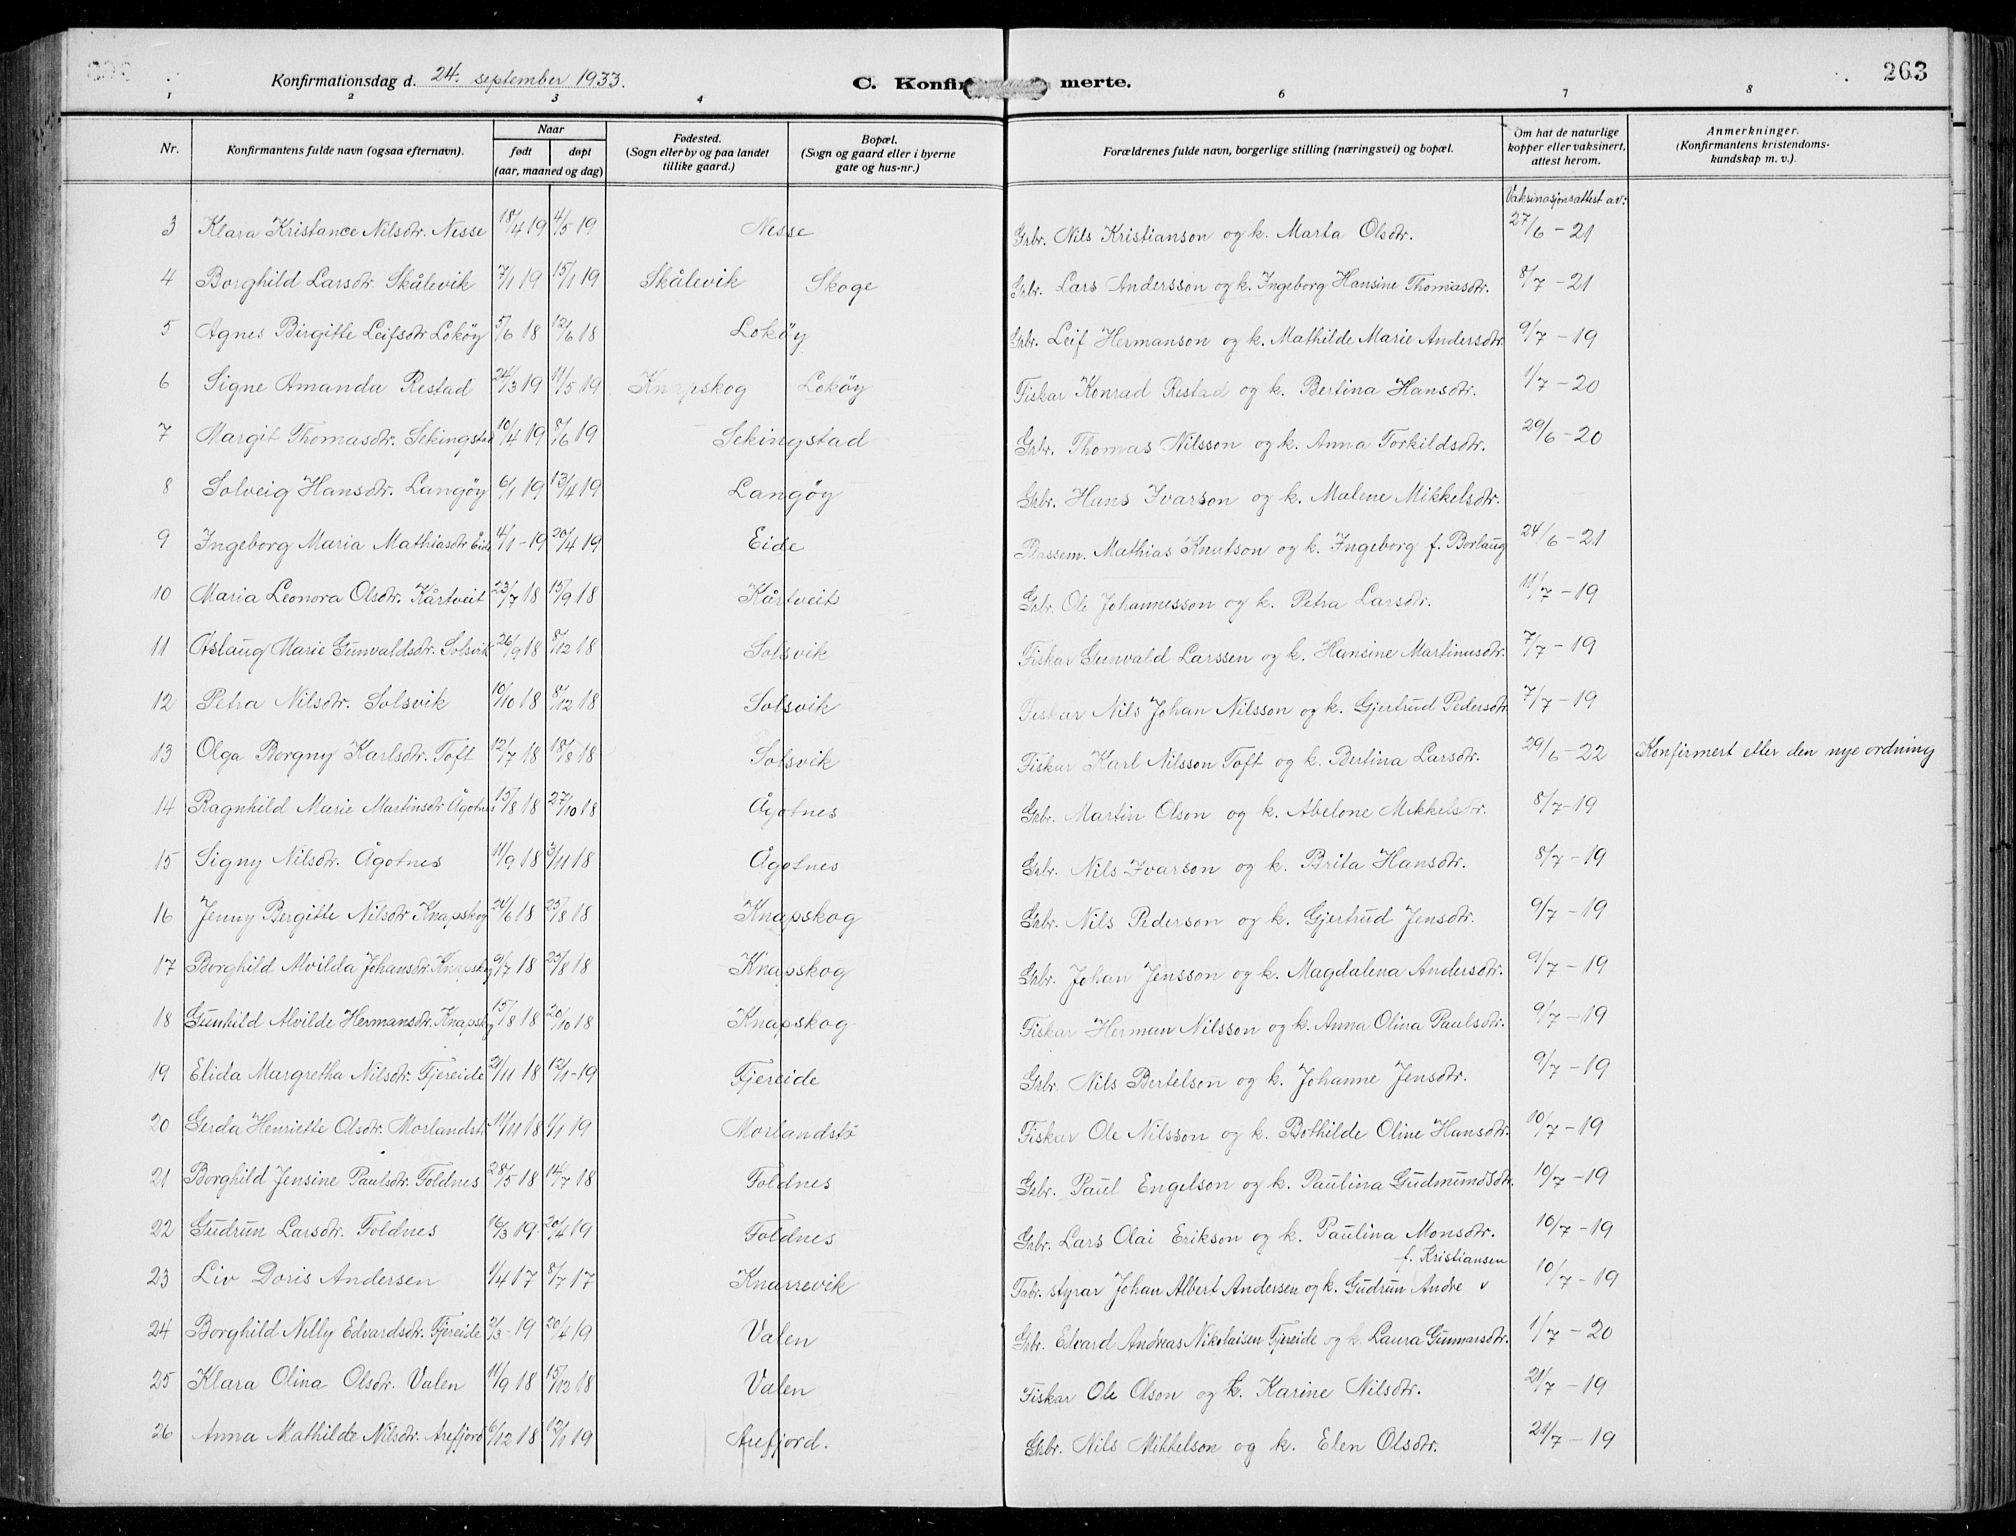 263
Konfirmationsdag d. 24. september 1933. C. Konfir merte.
1 2 3 4 6 7 8
Nr. Konfirmantens fulde navn (ogsaa efternavn). Naar født døpt (aar, maaned og dag) Fødested. (Sogn eller by og paa landet tillike gaard.) Bopæl. (Sogn og gaard eller i byerne gate og hus-nr.) Forældrenes fulde navn, borgerlige stilling (næringsvei) og bopæl. Om hat de naturlige kopper eller vaksinert, attest herom. Anmerkninger. (Konfirmantens kristendoms-kundskap m. v.).
Vaksinasjonsattest av:
3 Klara Kristance Nilsdtr. Nesse 18/4 19 4/5 19 Nesse Gbr. Nils Kristianson og k. Marta Olsdtr. 27/6 - 21
4 Borghild Larsdtr. Skålevik 7/1 19 15/1 19 Skålevik Skoge Gbr. Lars Andersson og k. Ingeborg Hansine Thomasdtr. 8/7 - 21
5 Agnes Birgitte Leifsdtr Lokøy 5/6 18 12/6 18 Lokøy Gbr. Leif Hermanson og k. Mathilde Marie Andersdtr 9/7 - 19
6 Signe Amanda Restad 24/3 19 11/5 19 Knapskog Lokøy Fiskar Konrad Restad og k. Bertina Hansdtr. 1/7 - 20
7 Margit Thomasdtr. Sekingstad 10/4 19 8/6 19 Sekingstad Gbr. Thomas Nilsson og k. Anna Torkildsdtr. 29/6 - 20
8 Solveig Hansdtr. Langøy 6/1 19 13/4 19 Langøy Gbr. Hans Ivarson og k. Malene Mikkelsdtr.
9 Ingeborg Maria Mathiasdtr Eide 4/1 - 19 20/4 19 Eide Plassem. Mathias Knutson og k. Ingeborg f. Borlaug 24/6 - 21
10 Maria Leonora Olsdtr. Kårtveit 23/7 18 15/9 18 Kårtveit Gbr. Ole Johannesson og k. Petra Larsdtr. 11/7 - 19
11 Aslaug Marie Gunvaldsdtr. Solsvik 26/9 18 8/12 18 Solsvik Fiskar Gunvald Larssen og k. Hansine Martinusdtr. 7/7 - 19
12 Petra Nilsdtr. Solsvik 10/10 18 8/12 18 Solsvik Fiskar Nils Johan Nilsson og k. Gjertrud Pedersdtr 7/7 - 19
13 Olga Borgny Karlsdtr. Toft 12/7 18 18/8 18 Solsvik Fiskar Karl Nilsson Toft og k. Bertina Larsdtr. 29/6 - 22 Konfirmert etter den nye ordning
14 Ragnhild Marie Martinsdtr Ågotnes 15/8 18 27/10 18 Ågotnes Gbr. Martin Olson og k. Abelone Mikkelsdtr. 8/7 - 19
15 Signy Nilsdtr. Ågotnes 11/9 18 3/11 18 Ågotnes Gbr. Nils Ivarson og k. Brita Hansdtr. 8/7 - 19
16 Jenny Bergitte Nilsdtr Knapskog 20/6 18 25/8 18 Knapskog Gbr. Nils Pederson og k. Gjertrud Jensdtr. 9/7 - 19
17 Borghild Alvilda Johansdtr. Knapskog 9/7 18 25/8 18 Knapskog Gbr. Johan Jensson og k. Magdalena Andersdtr. 9/7 - 19
18 Gunhild Alvilde Hermansdtr. Knapskog 15/8 18 20/10 18 Knapskog Fiskar Herman Nilsson og k. Anna Olina Paulsdtr. 9/7 - 19
19 Elida Margretha Nilsdtr. Fjereide 21/11 18 12/1 - 19 Fjereide Gbr. Nils Bertelson og k. Johanne Jensdtr. 9/7 - 19
20 Gerda Henriette Olsdtr. Morlandstø 11/11 18 1/1 19 Morlandstø Fiskar Ole Nilsson og k. Bothilde Oline Hansdtr. 10/7 - 19
21 Borghild Jensine Paulsdtr. Foldnes 28/5 18 14/7 18 Foldnes Gbr. Paul Engelson og k. Paulina Gudmundsdtr. 10/7 - 19
22 Gudrun Larsdtr. Foldnes 16/3 19 20/4 19 Foldnes Gbr. Lars Olai Erikson og k. Paulina Monsdtr. 10/7 - 19
f. Kristiansen
23 Liv Doris Andersen 1/4 17 8/7 17 Knarrevik Fabr. styrar Johan Albert Andersen og k. Gudrun Andre v 10/7 - 19
24 Borghild Nelly Edvardsdtr. Fjereide 2/3 - 19 20/4 19 Valen Gbr. Edvard Andreas Nikolaisen Fjereide og k. Laura Gunnarsdtr. 1/7 - 20
25 Klara Olina Olsdtr. Valen 11/9 18 15/12 18 Valen Fiskar Ole Olson og k. Karine Nilsdtr. 21/7 - 19
26 Anna Mathilde Nilsdtr. Arefjord 6/12 18 12/1 19 Arefjord. Gbr. Nils Mikkelson og k. Elen Olsdtr. 21/7 - 19